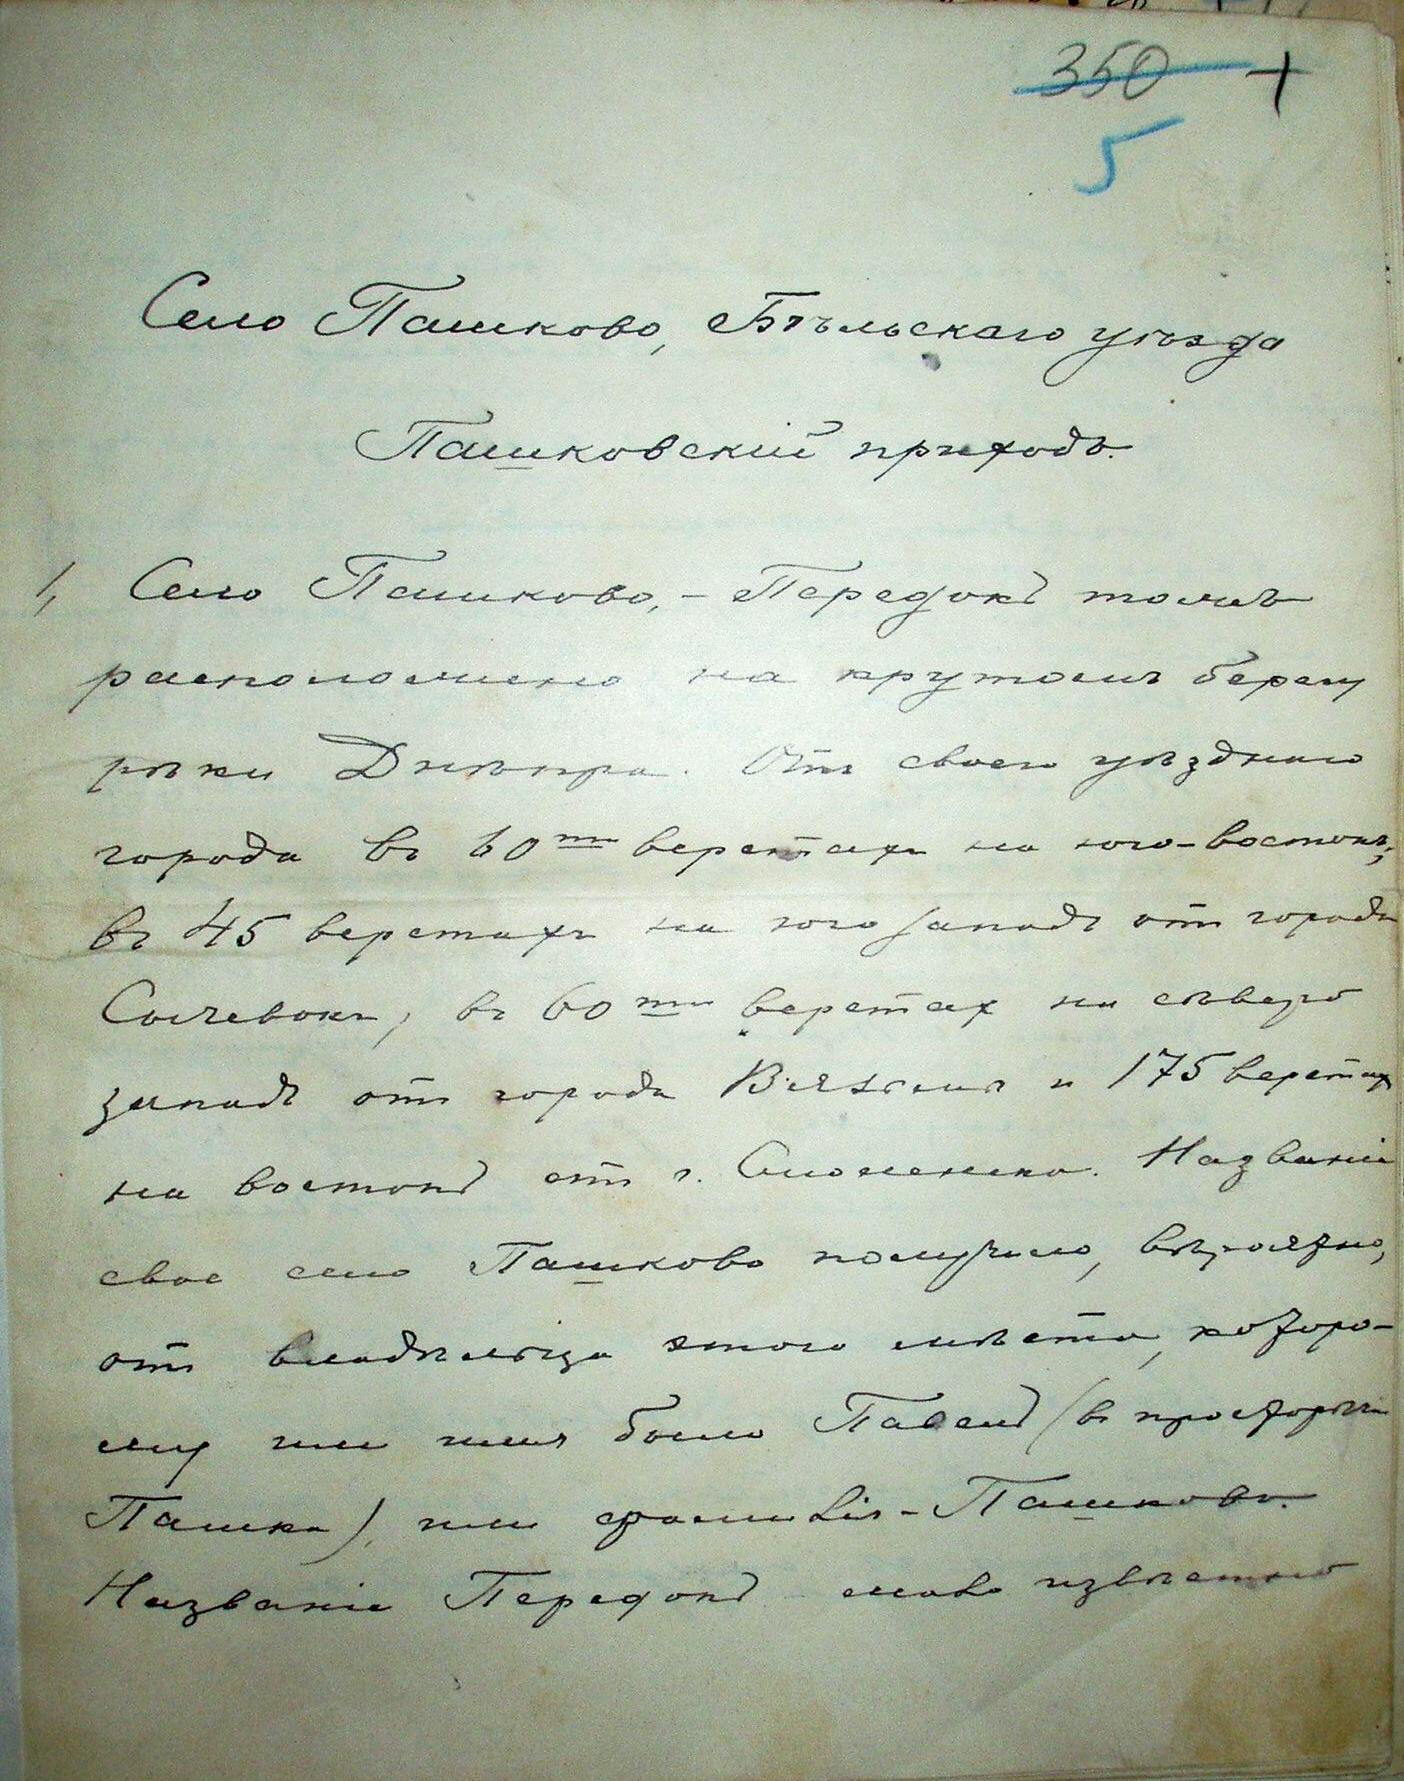 350 +
5
Село Пашково, Бѣльскаго уѣзда
Пашковскій приходъ.
1, Село Пашково, - Передокъ тожъ
расположено на крутомъ берегу
рѣки Днѣпра. Отъ своего уѣзднаго
города въ 60ти верстахъ на юго-востокъ;
въ 45 верстахъ на юго западъ отъ города
Сычевокъ, въ 60ти верстах на сѣверо
западъ отъ города Вязьмы и 175 верстах
на востокъ отъ г. Смоленска. Названіе
свое село Пашково получило, вѣроятно,
отъ владѣльца этого мѣста, которо-
му или имя было Павелъ (въ просторѣчіи
Пашка), или фамилія - Пашковъ.
Названіе Передокъ мало извѣстно